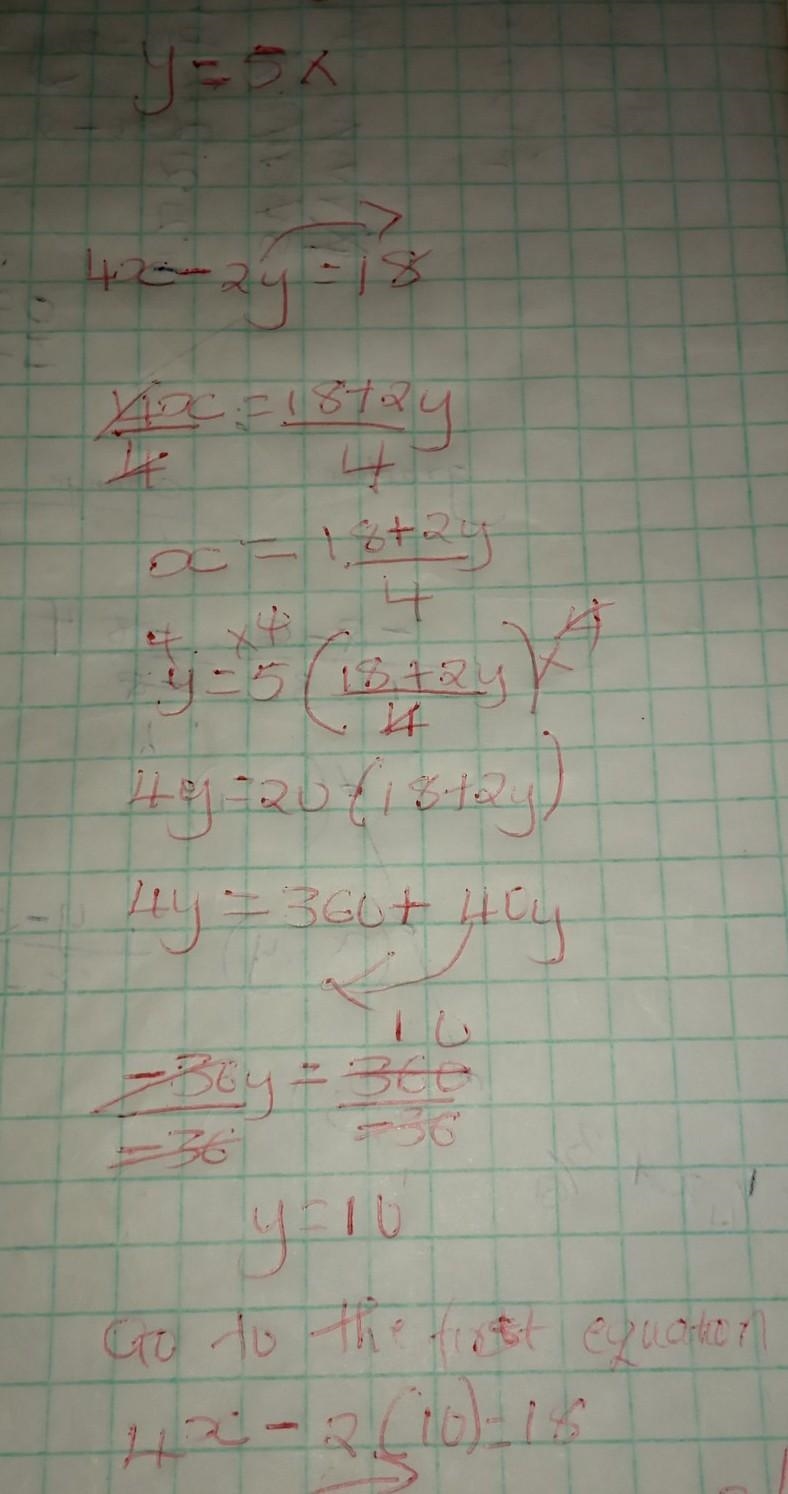 y = 5x
4x - 2y = 18
4x/4 = 18+2y/4
x = 18+2y/4
4 ×4
y = 5(18+2y/4)×4
4y = 20(18+2y)
4y = 360 + 40y
10
-36y/-36 = 360/-36
y = 10
Go to the first equation
4x - 2(10) = 18